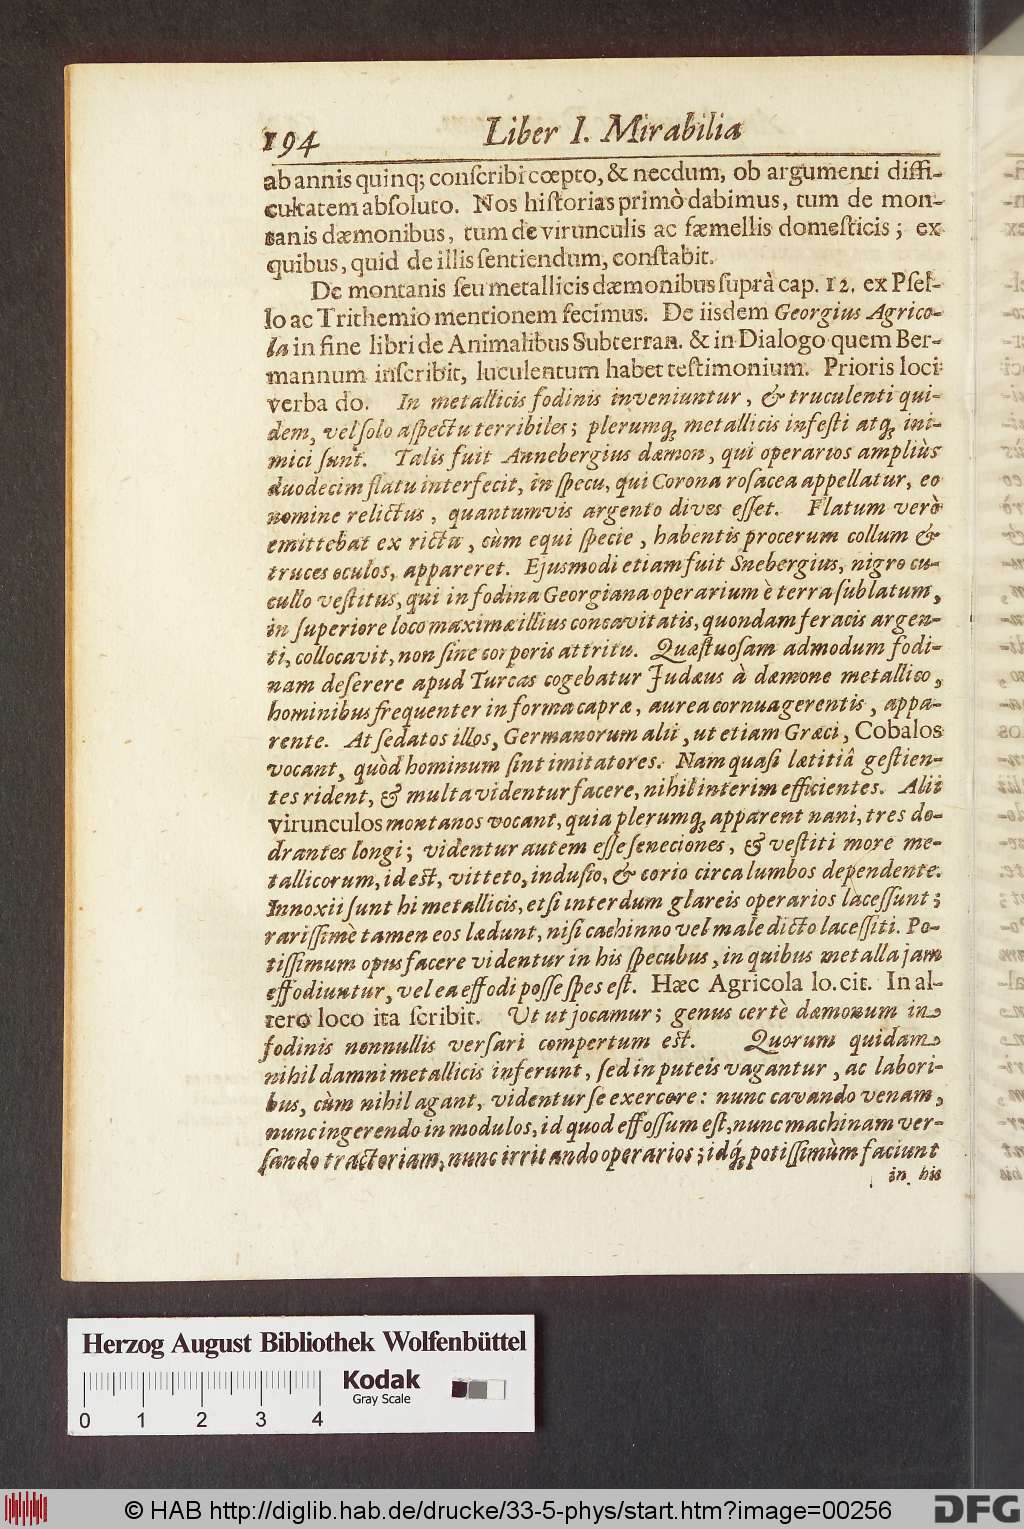 194 Liber I. Mirabilia
ab annis quinq; conſcribi cœpto, & necdum, ob argumenti diffi-
cultatem abſoluto. Nos hiſtorias primò dabimus, tum de mon-
tanis dæmonibus, tum de virunculis ac fæmellis domeſticis; ex
quibus, quid de illis ſentiendum, conſtabit.
De montanis ſeu metallicis dæmonibus ſuprà cap. 12. ex Pſel-
lo ac Trithemio mentionem fecimus. De iisdem Georgius Agrico-
la in fine libri de Animalibus Subterran. & in Dialogo quem Ber-
mannum inſcribit, luculentum habet teſtimonium. Prioris loci
verba do. In metallicis fodinis inveniuntur, & truculenti qui-
dem, vel ſolo aſpectu terribiles; plerumq; metallicis infeſti atq; ini-
mici ſunt. Talis fuit Annebergius dæmon, qui operarios ampliùs
duodecim flatu interfecit, in ſpecu, qui Corona roſacea appellatur, eo
nomine relictus, quantumvis argento dives eſſet. Flatum verò
emittebat ex rictu, cùm equi ſpecie, habentis procerum collum &
truces oculos, appareret. Ejusmodi etiam fuit Snebergius, nigro cu-
cullo veſtitus, qui in fodina Georgiana operarium è terra ſublatum,
in ſuperiore loco maximæ illius concavitatis, quondam feracis argen-
ti, collocavit, non ſine corporis attritu. Quæſtuoſam admodum fodi-
nam deſerere apud Turcas cogebatur Judæus à dæmone metallico,
hominibus frequenter in forma capræ, aurea cornua gerentis, appa-
rente. At ſedatos illos, Germanorum alii, ut etiam Græci, Cobalos
vocant, quòd hominum ſint imitatores. Nam quaſi lætitiâ geſtien-
tes rident, & multa videntur facere, nihil interim efficientes. Alii
virunculos montanos vocant, quia plerumq; apparent nani, tres do-
drantes longi; videntur autem eſſe ſeneciones, & veſtiti more me-
tallicorum, id eſt, vitteto, induſio, & corio circa lumbos dependente.
Innoxii ſunt hi metallicis, etſi interdum glareis operarios laceſſunt;
rariſſimè tamen eos lædunt, niſi cachinno vel maledicto laceſſiti. Po-
tiſſimum opus facere videntur in his ſpecubus, in quibus metalla jam
effodiuntur, vel ea effodi poſſe ſpes eſt. Hæc Agricola lo. cit. In al-
tero loco ita ſcribit. Ut ut jocamur; genus certè dæmonum in
fodinis nonnullis verſari compertum eſt. Quorum quidam
nihil damni metallicis inferunt, ſed in puteis vagantur, ac labori-
bus, cùm nihil agant, videntur ſe exercere: nunc cavando venam,
nunc ingerendo in modulos, id quod effoſſum eſt, nunc machinam ver-
ſando tractoriam, nunc irritando operarios; idq́; potiſſimùm faciunt
in his
Herzog August Bibliothek Wolfenbüttel
Kodak
Gray Scale
0 1 2 3 4
© HAB http://diglib.hab.de/drucke/33-5-phys/start.htm?image=00256
DFG